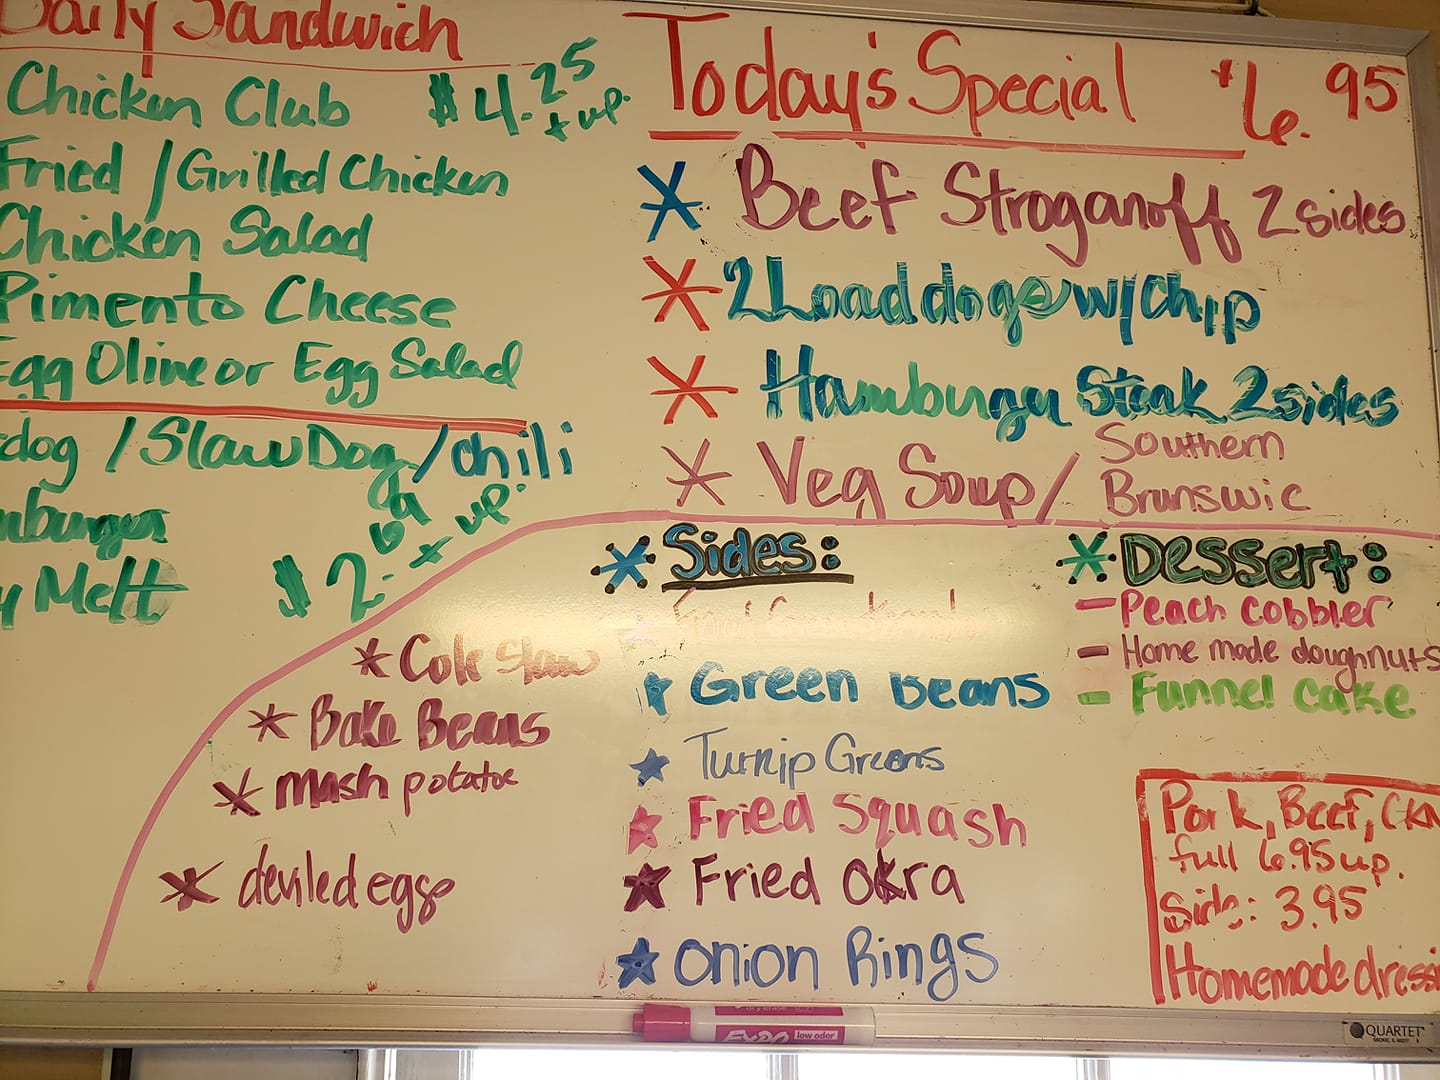 Daily Sandwich
Chicken Club $4.25 + up.
Fried / Grilled Chicken
Chicken Salad
Pimento Cheese
Egg Olive or Egg Salad
dog / Slaw Dog / chili
Melt $2.69 + up.
Today's Special $6.95
Beef Stroganoff 2 sides
2 Load dogs w/ Chip
Hamburger Steak 2 sides
Veg Soup / Southern
Brunswic
Sides:
Cole Slaw
Bake Beans
mash potatoe
deviled eggs
Green Beans
Turnip Greens
Fried Squash
Fried Okra
Onion Rings
Dessert:
- Peach cobbler
- Home made doughnuts
- Funnel cake
Pork, Beef, CKN
full 6.95 up.
Side: 3.95
Homemade dressi
EXPO low odor
QUARTET